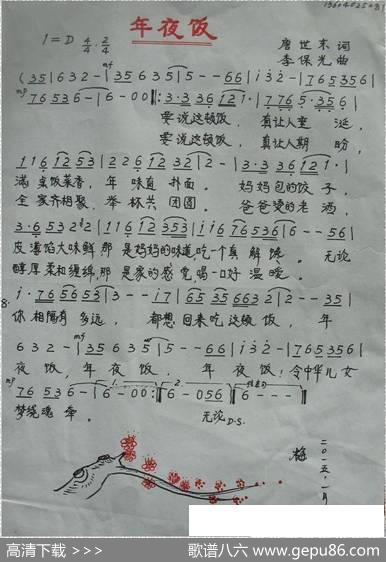 年夜饭
1=D 4/4 2/4
唐世东 词
李保光 曲
(35|632-|35635|5--66|i32-|765356|
76536-|6-00‖:3·33612i·|7765·356|
要说这顿饭，真让人垂涎，
要说这顿饭，真让人期盼，
1161253|22612332|2-|3·3361211·|
满桌饭菜香，年味直扑面。妈妈包的饺子，
全家齐相聚，举杯共团圆。爸爸烫的老酒，
3·65322|112353|1676536|6--56|
皮薄馅大味鲜那是妈妈的味道，吃一个真解馋。无论
醇厚柔和缠绵，那是家的感觉，喝一口好温暖。
8.
i·765653|3--i7|6535663|2--35|
你相隔有多远，都想回来吃这顿饭，年
632-|35635|5--66|i32-|765356|
夜饭，年夜饭，年夜饭！令中华儿女
76536-|6-00:‖6-056|6---|
梦绕魂牵。无论D.S.
二〇一五，一月
高清下载 >>>
歌谱八六 www.gepu86.com